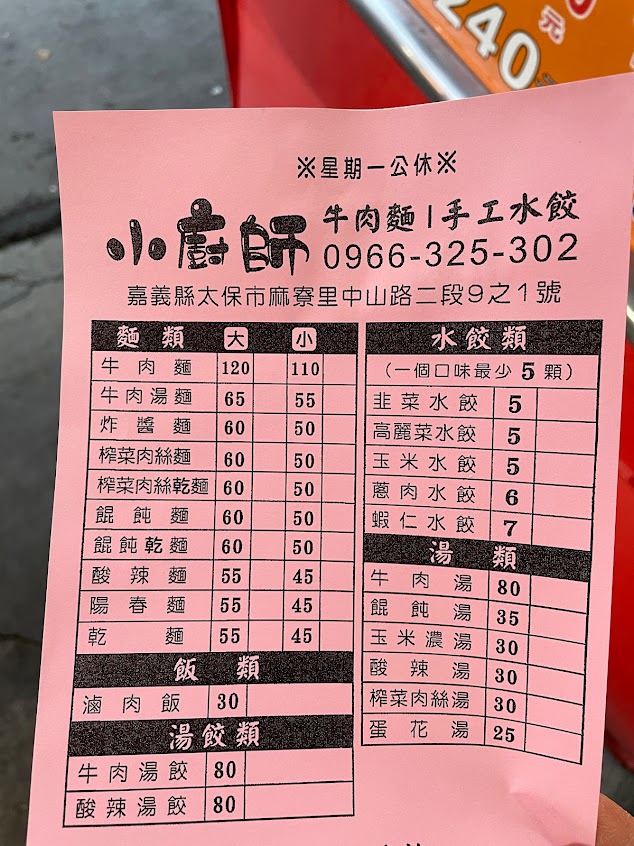 240
元
※星期一公休※
小廚師
牛肉麵|手工水餃
0966-325-302
嘉義縣太保市麻寮里中山路二段9之1號
麵類 大 小
牛肉麵 120 110
牛肉湯麵 65 55
炸醬麵 60 50
榨菜肉絲麵 60 50
榨菜肉絲乾麵 60 50
餛飩麵 60 50
餛飩乾麵 60 50
酸辣麵 55 45
陽春麵 55 45
乾麵 55 45
飯類
滷肉飯 30
湯餃類
牛肉湯餃 80
酸辣湯餃 80
水餃類
(一個口味最少5顆)
韭菜水餃 5
高麗菜水餃 5
玉米水餃 5
蔥肉水餃 6
蝦仁水餃 7
湯類
牛肉湯 80
餛飩湯 35
玉米濃湯 30
酸辣湯 30
榨菜肉絲湯 30
蛋花湯 25